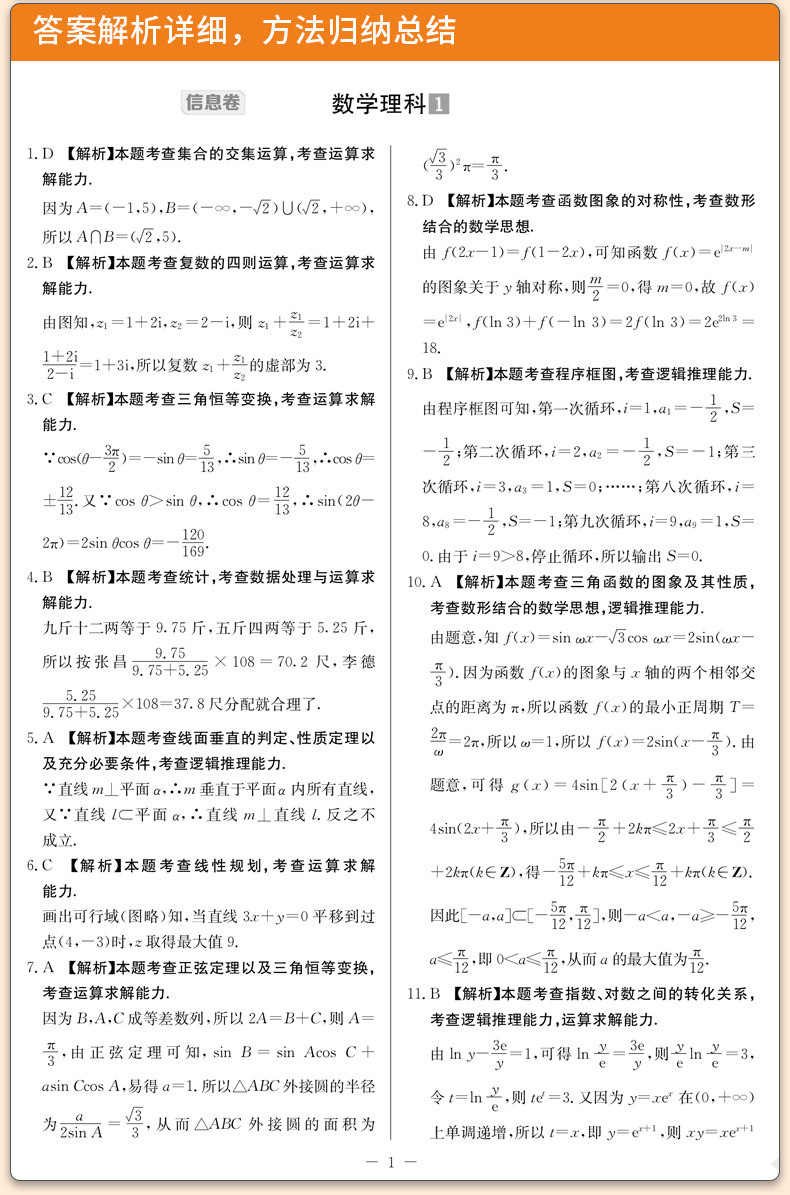 答案解析详细，方法归纳总结
信息卷 数学理科1
1. D 【解析】本题考查集合的交集运算,考查运算求
解能力.
因为 A=(-1,5),B=(-∞,-√2)∪(√2,+∞),
所以 A∩B=(√2,5).
2. B 【解析】本题考查复数的四则运算,考查运算求
解能力.
由图知,z₁=1+2i,z₂=2-i,则 z₁+z₁/z₂=1+2i+
(1+2i)/(2-i)=1+3i,所以复数 z₁+z₁/z₂的虚部为 3.
3. C 【解析】本题考查三角恒等变换,考查运算求解
能力.
∵cos(θ-3π/2)=-sin θ=5/13,∴sin θ=-5/13,∴cos θ=
±12/13.又∵cos θ>sin θ,∴cos θ=12/13,∴sin(2θ-
2π)=2sin θcos θ=-120/169.
4. B 【解析】本题考查统计,考查数据处理与运算求
解能力.
九斤十二两等于 9.75 斤,五斤四两等于 5.25 斤,
所以按张昌 9.75/(9.75+5.25)×108=70.2 尺,李德
5.25/(9.75+5.25)×108=37.8 尺分配就合理了.
5. A 【解析】本题考查线面垂直的判定、性质定理以
及充分必要条件,考查逻辑推理能力.
∵直线 m⊥平面 α,∴m 垂直于平面 α 内所有直线,
又∵直线 l⊂平面 α,∴直线 m⊥直线 l.反之不
成立.
6. C 【解析】本题考查线性规划,考查运算求解
能力.
画出可行域(图略)知,当直线 3x+y=0 平移到过
点(4,-3)时,z 取得最大值 9.
7. A 【解析】本题考查正弦定理以及三角恒等变换,
考查运算求解能力.
因为 B,A,C 成等差数列,所以 2A=B+C,则 A=
π/3,由正弦定理可知,sin B=sin Acos C+
asin Ccos A,易得 a=1.所以△ABC 外接圆的半径
为 a/(2sin A)=√3/3,从而△ABC 外接圆的面积为
(√3/3)²π=π/3.
8. D 【解析】本题考查函数图象的对称性,考查数形
结合的数学思想.
由 f(2x-1)=f(1-2x),可知函数 f(x)=e^|2x-m|
的图象关于 y 轴对称,则m/2=0,得 m=0,故 f(x)
=e^|2x|,f(ln 3)+f(-ln 3)=2f(ln 3)=2e^(2ln 3)=
18.
9. B 【解析】本题考查程序框图,考查逻辑推理能力.
由程序框图可知,第一次循环,i=1,a₁=-1/2,S=
-1/2;第二次循环,i=2,a₂=-1/2,S=-1;第三
次循环,i=3,a₃=1,S=0;……;第八次循环,i=
8,a₈=-1/2,S=-1;第九次循环,i=9,a₉=1,S=
0.由于 i=9>8,停止循环,所以输出 S=0.
10. A 【解析】本题考查三角函数的图象及其性质,
考查数形结合的数学思想,逻辑推理能力.
由题意,知 f(x)=sin ωx-√3cos ωx=2sin(ωx-
π/3).因为函数 f(x)的图象与 x 轴的两个相邻交
点的距离为 π,所以函数 f(x)的最小正周期 T=
2π/ω=2π,所以 ω=1,所以 f(x)=2sin(x-π/3).由
题意,可得 g(x)=4sin[2(x+π/3)-π/3]=
4sin(2x+π/3),所以由-π/2+2kπ≤2x+π/3≤π/2
+2kπ(k∈Z),得-5π/12+kπ≤x≤π/12+kπ(k∈Z).
因此[-a,a]⊂[-5π/12,π/12],则-a<a,-a≥-5π/12,
a≤π/12,即 0<a≤π/12,从而 a 的最大值为π/12.
11. B 【解析】本题考查指数、对数之间的转化关系,
考查逻辑推理能力,运算求解能力.
由 ln y-3e/y=1,可得 ln y/e=3e/y,则y/e ln y/e=3,
令 t=ln y/e,则 te^t=3.又因为 y=xe^x 在(0,+∞)
上单调递增,所以 t=x,即 y=e^(x+1),则 xy=xe^(x+1)
— 1 —